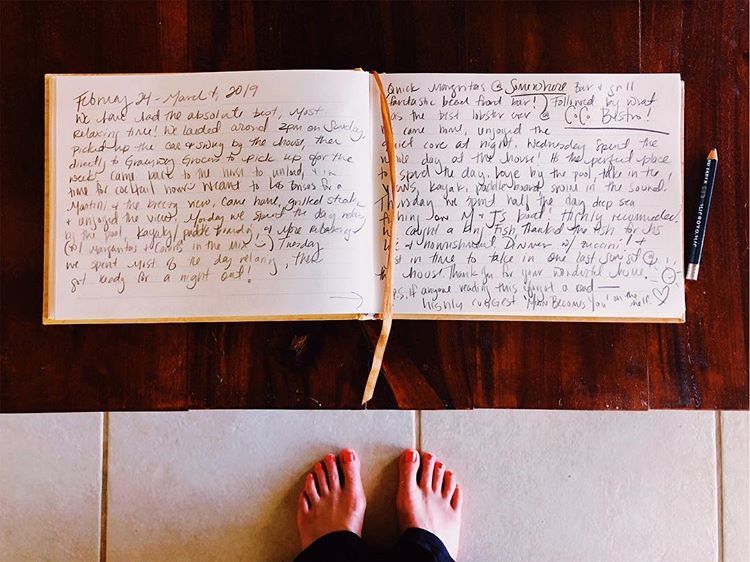 February 24 - March 4, 2019
We have had the absolute best, most
relaxing time! We landed around 2pm on Sunday,
picked up the car & swung by the house, then
directly to Graceway Grocers to pick up for the
week. Came back to the house to unload, & in
time for cocktail hour! Went to Las Brisas for a
Martini & the breezy view, came home, grilled steaks
& enjoyed the view. Monday we spent the day
by the pool, kayak/paddle boarding, & more relaxing
(w/ margaritas & in the mix) Tuesday
we spent most of the day relaxing, then
got ready for a night out!
Quick Margaritas @ Somewhere Bar & grill
fantastic beach front bar!) Followed by what
was the best lobster ever @ CoCo Bistro!
We came home, enjoyed the
quiet cove at night. Wednesday spent the
whole day at the house! It's the perfect place
to spend the day. Laye by the pool, take in the
views, kayak, paddleboard, swim in the sound.
Thursday we spent half the day deep sea
fishing on M & J's boat! Highly recommended.
caught a King Fish, thanked the fish for its
life & nourishment. Dinner w/ zuccini! &
just in time to take in one last sunset @
the house. Thank you for your wonderful house.
P.S. if anyone reading this wants a read —
highly suggest "Becomes You" on the shelf.